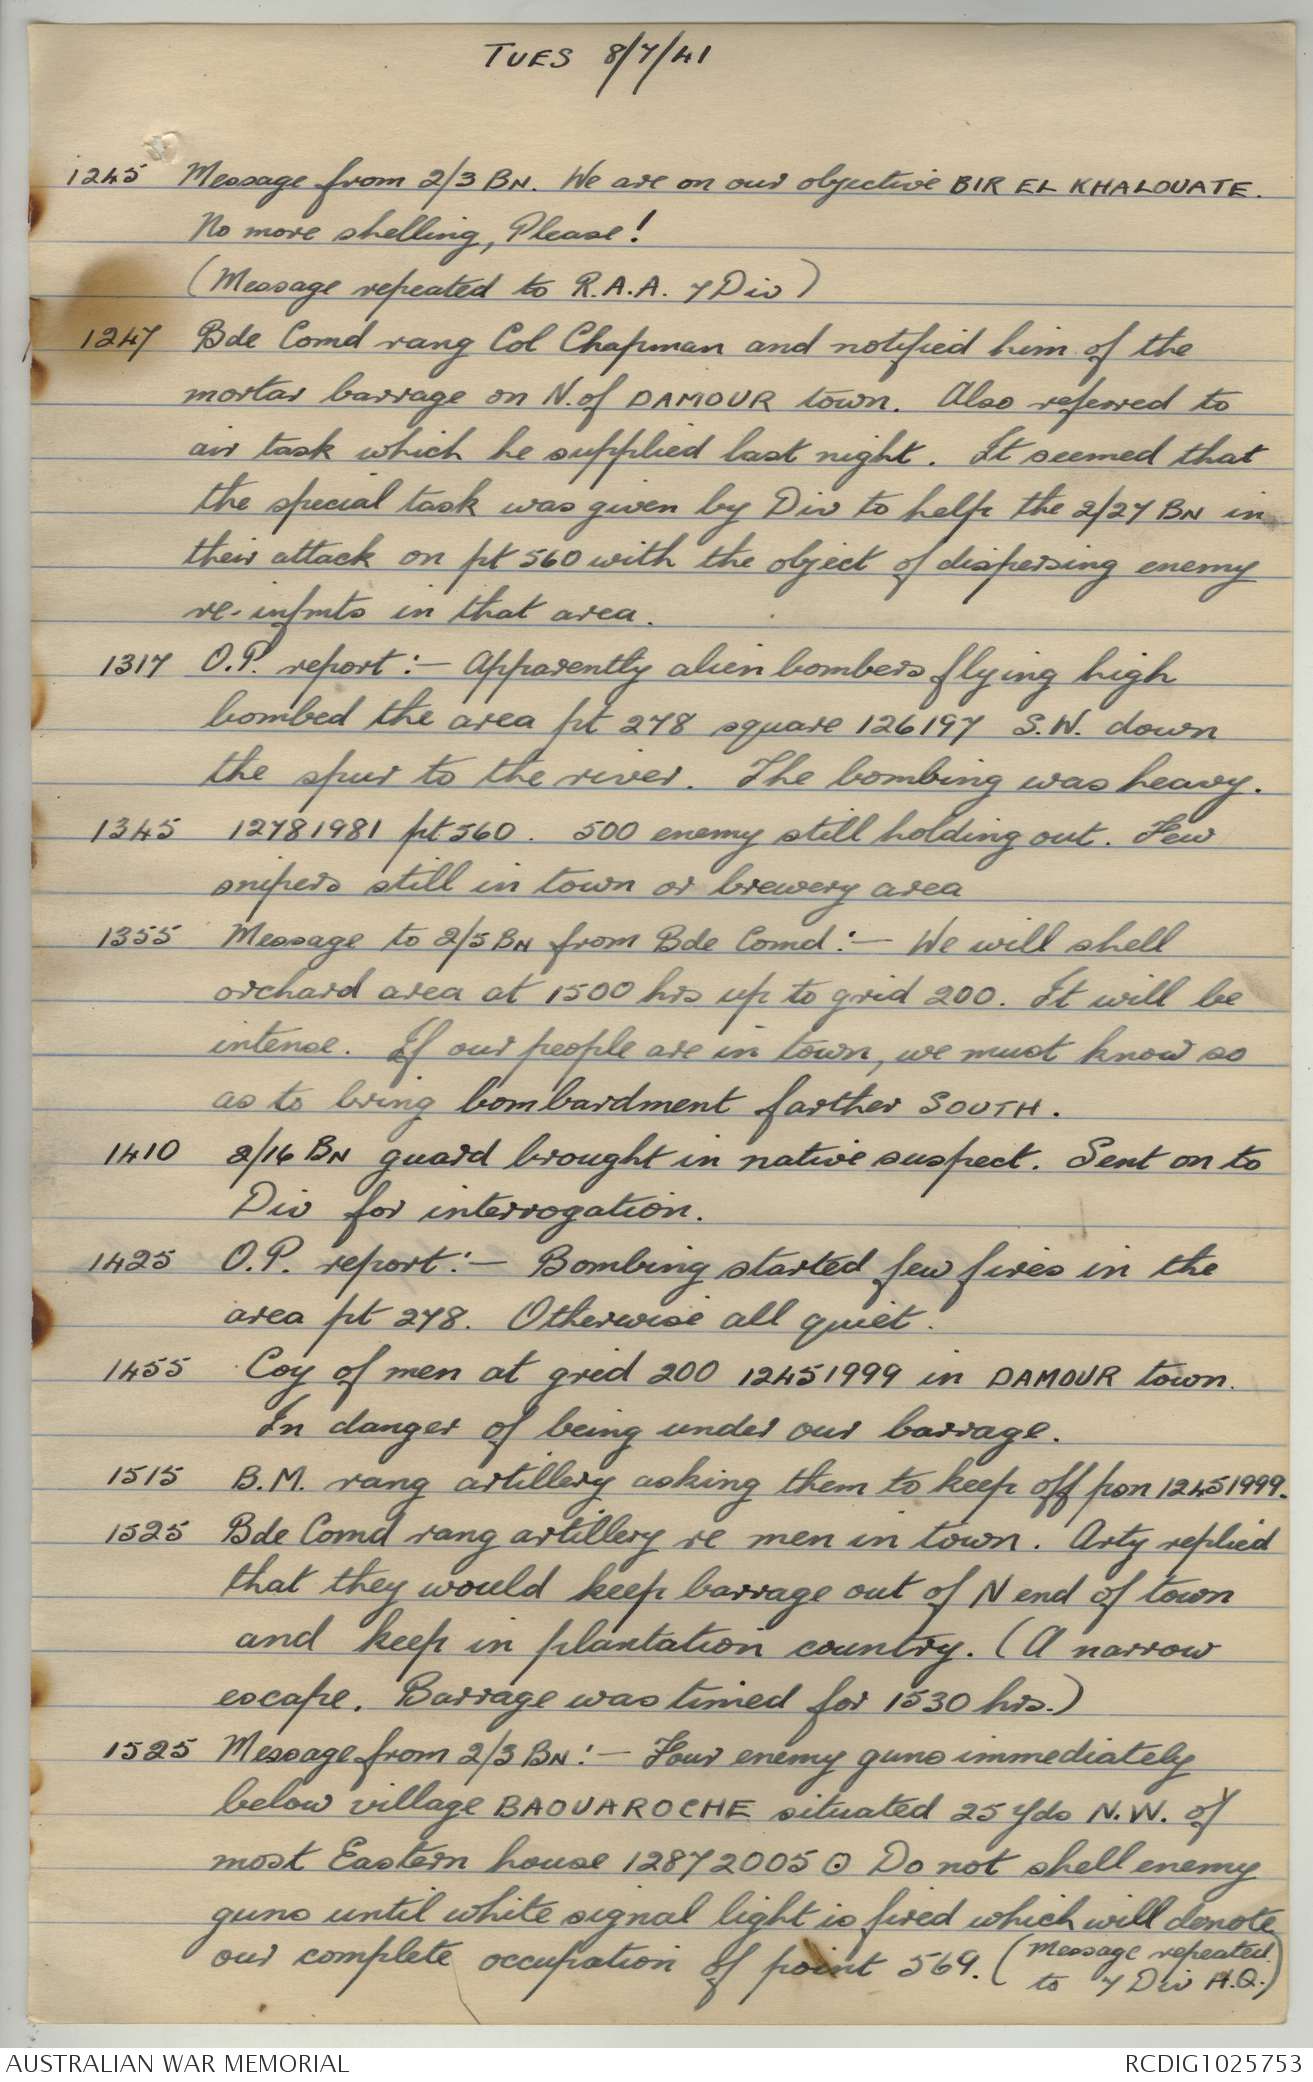 TUES 8/7/41
1245 Message from 2/3 BN. We are on our objective BIR EL KHALOUATE.
No more shelling, Please!
(Message repeated to R.A.A. 7 Div)
1247 Bde Comd rang Col Chapman and notified him of the
mortar barrage on N. of DAMOUR town. Also referred to
air task which he supplied last night. It seemed that
the special task was given by Div to help the 2/27 BN in
their attack on pt 560 with the object of dispersing enemy
re-infmts in that area.
1317 O.P. report:- Apparently alien bombers flying high
bombed the area pt 278 square 126197 S.W. down
the spur to the river. The bombing was heavy.
1345 12781981 pt 560. 500 enemy still holding out. Few
snipers still in town or brewery area
1355 Message to 2/5 BN from Bde Comd:- We will shell
orchard area at 1500 hrs up to grid 200. It will be
intense. If our people are in town, we must know so
as to bring bombardment farther SOUTH.
1410 2/16 BN guard brought in native suspect. Sent on to
Div for interrogation.
1425 O.P. report:- Bombing started few fires in the
area pt 278. Otherwise all quiet.
1455 Coy of men at grid 200 12451999 in DAMOUR town.
In danger of being under our barrage.
1515 B.M. rang artillery asking them to keep off psn 12451999.
1525 Bde Comd rang artillery re men in town. Arty replied
that they would keep barrage out of N end of town
and keep in plantation country. (A narrow
escape. Barrage was timed for 1530 hrs.)
1525 Message from 2/3 BN:- Four enemy guns immediately
below village BAOUAROCHE situated 25 yds N.W. of
most Eastern house 12872005 ⊙ Do not shell enemy
guns until white signal light is fired which will denote
our complete occupation of point 569. (Message repeated
to 7 Div H.Q.)
AUSTRALIAN WAR MEMORIAL RCDIG1025753